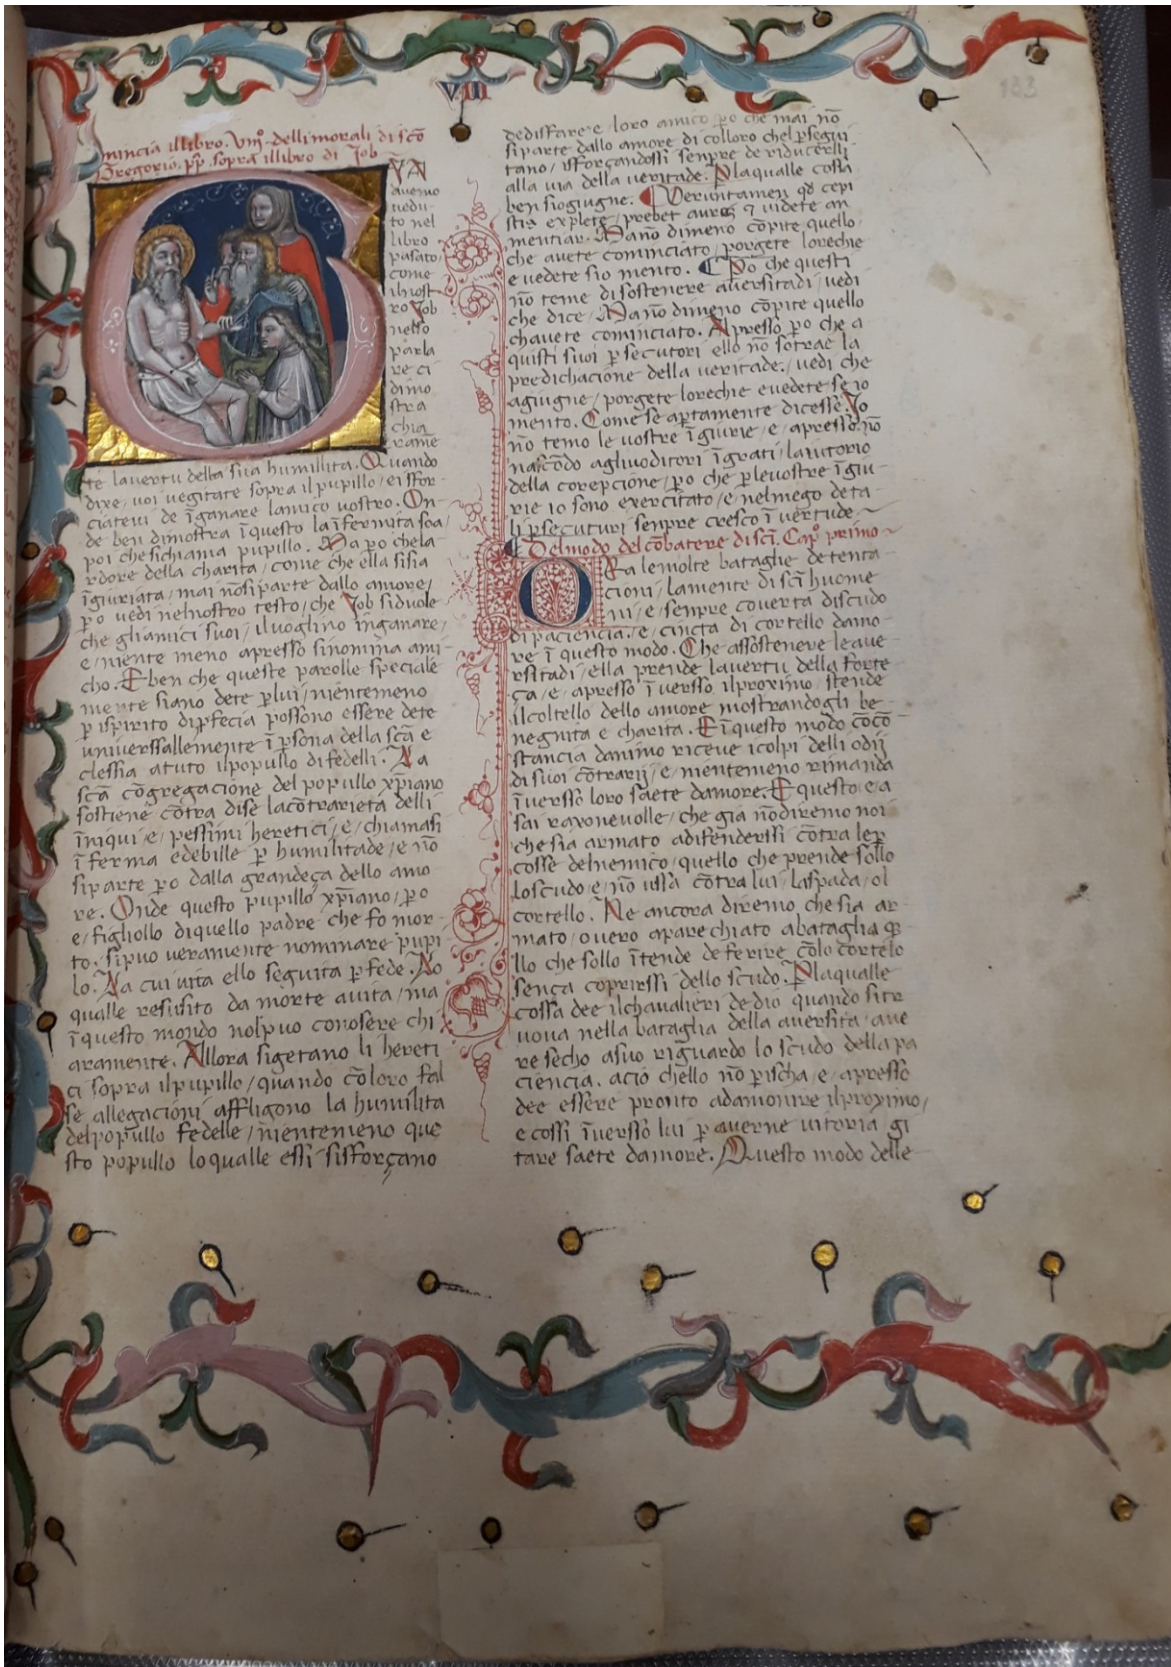 VIII
183
mincia illibro. Vııj°. delli morali di scō
Gregorio. pp̄. sopra illibro di Job
avemo
uedu-
to nel
libro
pasato
come
ro Job
nello
parla
re ci
dimo
stra
chia
rame
te lauertu della sua humillita. Quando
dixe, uoi uegitate sopra il pupillo / ei sfor-
ciateui de īganare lamico uostro. On-
de ben dimostra īquesto la īfermita soa /
poi che si chiama pupillo. Ma ꝑo chela
rdore della charita / come che ella si sia
īgiuriata / mai nō si parte dallo amore /
ꝑo uedi nel nostro testo / che Job si duole
che gli amici suoi / il uoglino inganare /
e / niente meno apresso si nomina ami-
cho. E ben che queste parolle speciale
mente siano dete ꝑ lui / nientemeno
ꝑ ispirito di ꝓfecia possono essere dete
uniuerssallemente ī ꝑsona della scā e
clessia a tuto il popullo di fedelli. La
scā cōgregacione del popullo xp̄iano
sostiene cōtra di se la cōtrarieta delli
īniqui e / pessimi heretici / e / chiamasi
īferma e debille ꝑ humilitade / e nō
si parte ꝑo dalla grandeça dello amo
re. Onde questo pupillo xp̄iano / ꝑo
e / figliollo di quello padre che fo mor-
to. si puo ueramente nominare pupi
lo. La cui uita ello seguita ꝑ fede. Lo
qualle resusito da morte a uita / ma
ī questo mondo nol puo conosere chi
aramente. Allora si getano li hereti
ci sopra il pupillo / quando cō loro fal
se allegacioni affligono la humilita
del popullo fedelle / nientemeno que
sto popullo lo qualle essi si sforçano
de disfare e / loro amico ꝑo che mai nō
si parte dallo amore di colloro chel ꝑsegui
tano / isforçandossi senpre de riducerlli
alla uia della ueritade. ꝑ la qualle cossa
ben si ogiugne. Veruntamen qd̄ cepi
stis explete / prebet aures ⁊ videte an
mentiar. Ma nō dimeno cōpite quello
che auete cominciato / porgete lorechie
e uedete sio mento. ꝑo che questi
nō teme di sostenere auersitadi / uedi
che dice. Ma nō dimeno cōpite quello
chauete cominciato. Apresso ꝑo che a
quisti suoi ꝑsecutori ello nō sotrae la
predichacione della ueritade / uedi che
agiugne / porgete lorechie e uedete se io
mento. Come se aꝑtamente dicesse. Io
nō temo le uostre īgiurie / e / apresso nō
nascōdo agli uoditori īgrati / lautorio
della corepcione / ꝑo che ꝑ le uostre īgiu-
rie io sono exercitato / e / nel mego de ta-
li ꝑsecuturi senpre cresco ī uertude
Del modo del cōbatere di scī. Capo primo
Ra le molte bataglie de tenta
cioni / la mente di scī huome
ni / e / senpre couerta di scudo
di paciencia. e / cincta di cortello damo-
re ī questo modo. Che assostenere le aue
rsitadi / ella prende la uertu della forte
ça / e / apresso ī uersso il proximo / stende
il coltello dello amore mostrandogli be-
negnita e charita. E ī questo modo cō cō
stancia danimo riceue i colpi delli odij
di suoi cōtrarij / e / nientemeno rimanda
īuersso loro saete damore. E questo e a
sai raxoneuolle / che gia nō diremo noi
che sia armato a difenderssi cōtra le ꝑ
cosse del nemico / quello che prende sollo
lo scudo e / nō ussa cōtra lui / la spada / ol
cortello. Ne ancora diremo che sia ar-
mato / o uero aparechiato a bataglia q̄
llo che sollo ītende de ferire cō lo cortelo
sença coprirssi dello scudo. ꝑ la qualle
cossa dee il chaualieri de dio quando si tr
uoua nella bataglia della auersita / aue
re secho a suo riguardo lo scudo della pa
ciencia. acio chello nō ꝑischa / e / apresso
dee essere pronto ad amonire il proximo /
e cossi īuersso lui ꝑ auerne uitoria / gi
tare saete damore. Questo modo delle